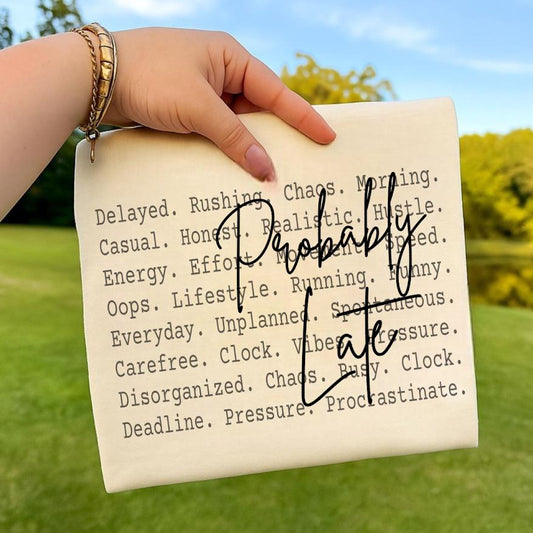 Delayed. Rushing. Chaos. Morning.
Casual. Honest. Realistic. Hustle.
Energy. Effort. Movement. Speed.
Oops. Lifestyle. Running. Funny.
Everyday. Unplanned. Spontaneous.
Carefree. Clock. Vibes. Pressure.
Disorganized. Chaos. Busy. Clock.
Deadline. Pressure. Procrastinate.
Probably
Late